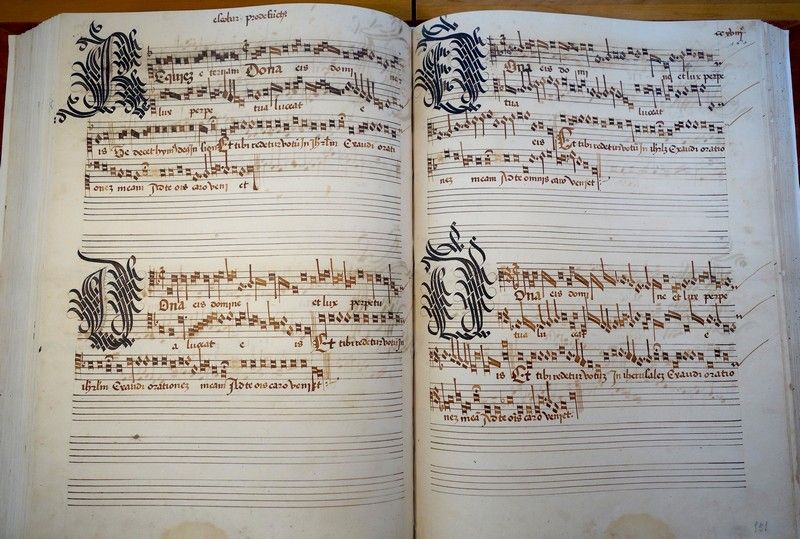 Requiez eternam Dona eis domi ne
lux perpe tua luceat e
is Te decet Et tibi redetur votū in ihrlm Exaudi orati
onez meam Ad te ois caro veni et
Dona eis domine et lux perpetu
a luceat e is Et tibi redetur votū In
ihrlm Exaudi orationez meam Ad te ois caro veniet
Dona eis do mi ne et lux perpe
tua luceat
eis Et tibi redetur votū In ihrlz Exaudi oratio
nez meam Ad te omnis caro veniet
Dona eis domi ne et lux perpe
tua lu ceat e
is Et tibi redetur votuz In iherusalez Exaudi oratio
nez meā Ad te ois caro veniet
151